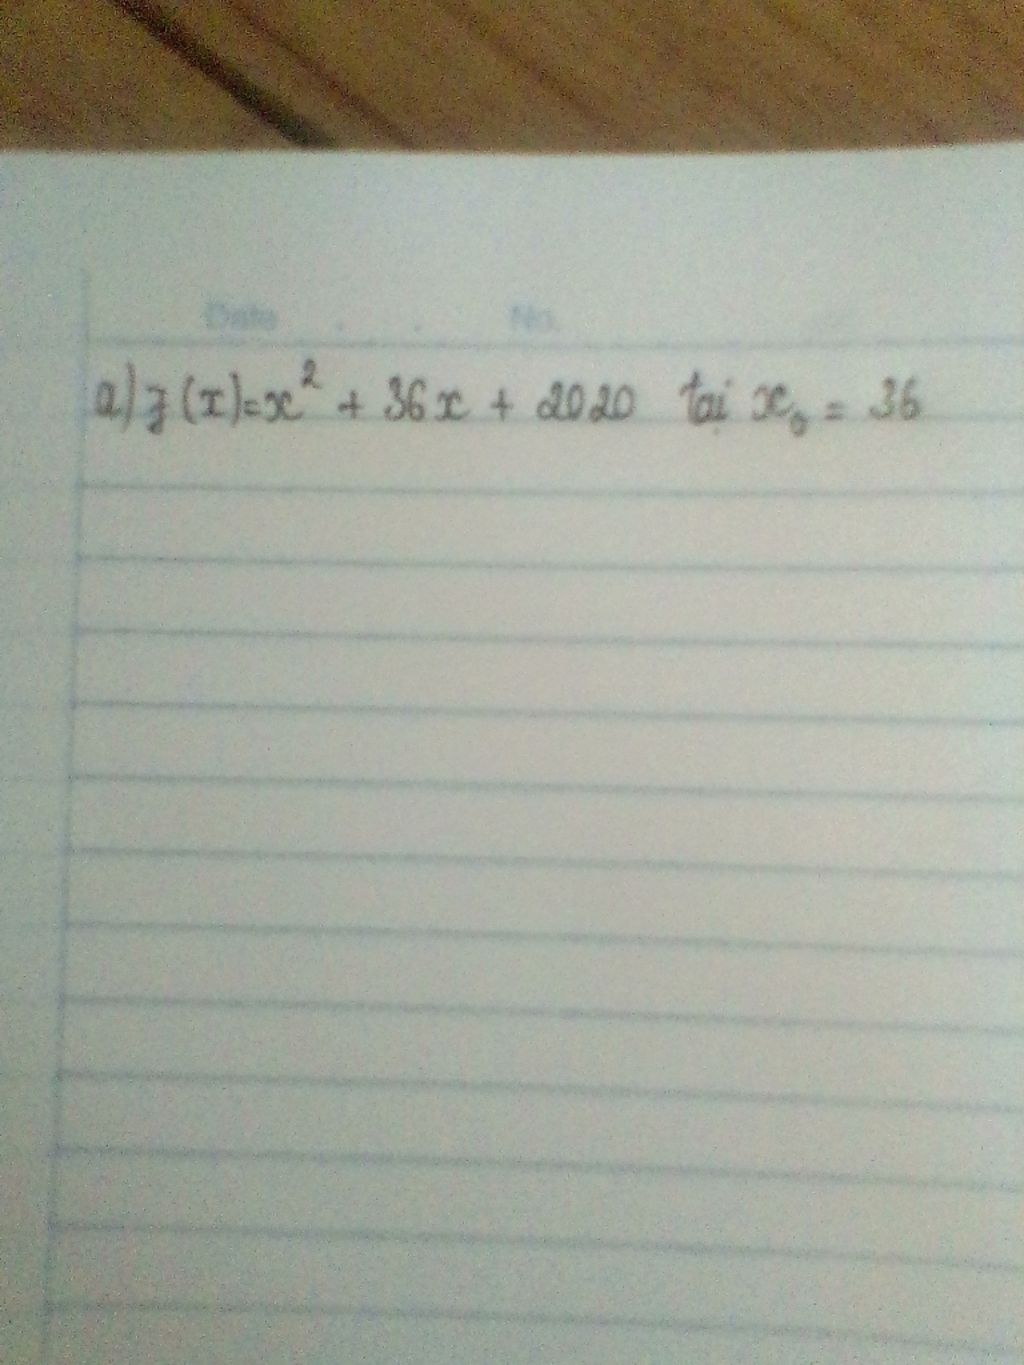 Date . . No.
a) f(x)=x² + 36x + 2020 tại x₀ = 36